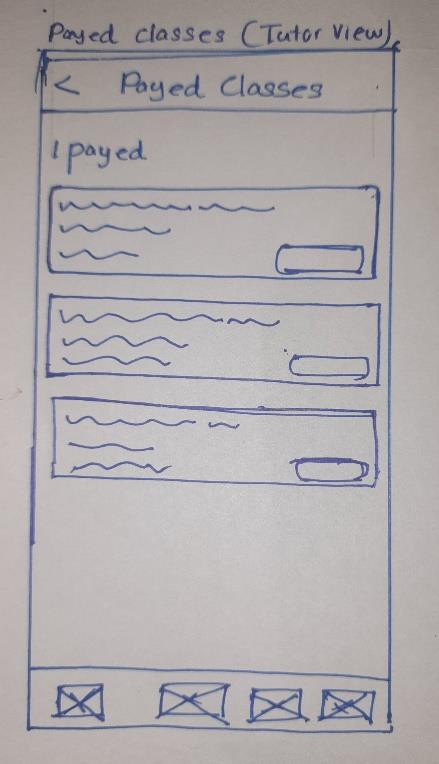 Payed classes (Tutor View)
< Payed Classes
1 payed